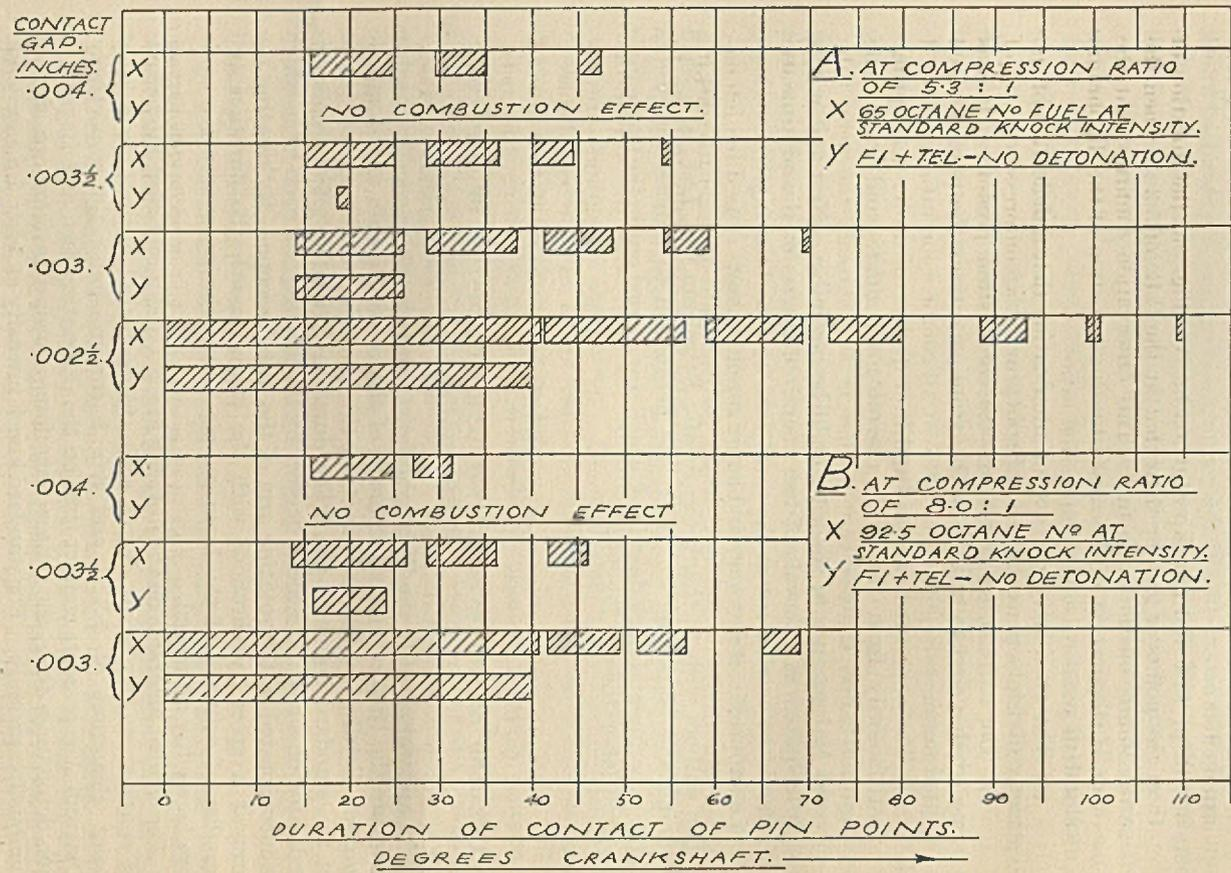 CONTACT
GAP.
INCHES.
·004.
X
Y
NO COMBUSTION EFFECT.
·003½.
X
Y
·003.
X
Y
·002½.
X
Y
A. AT COMPRESSION RATIO
OF 5·3 : 1
X 65 OCTANE Nº FUEL AT
STANDARD KNOCK INTENSITY.
Y F1 + T.E.L.-NO DETONATION.
·004.
X
Y
NO COMBUSTION EFFECT
·003½
X
Y
·003.
X
Y
B. AT COMPRESSION RATIO
OF 8·0 : 1
X 92·5 OCTANE Nº AT
STANDARD KNOCK INTENSITY.
Y F1 + TEL - NO DETONATION.
0 10 20 30 40 50 60 70 80 90 100 110
DURATION OF CONTACT OF PIN POINTS.
DEGREES CRANKSHAFT.